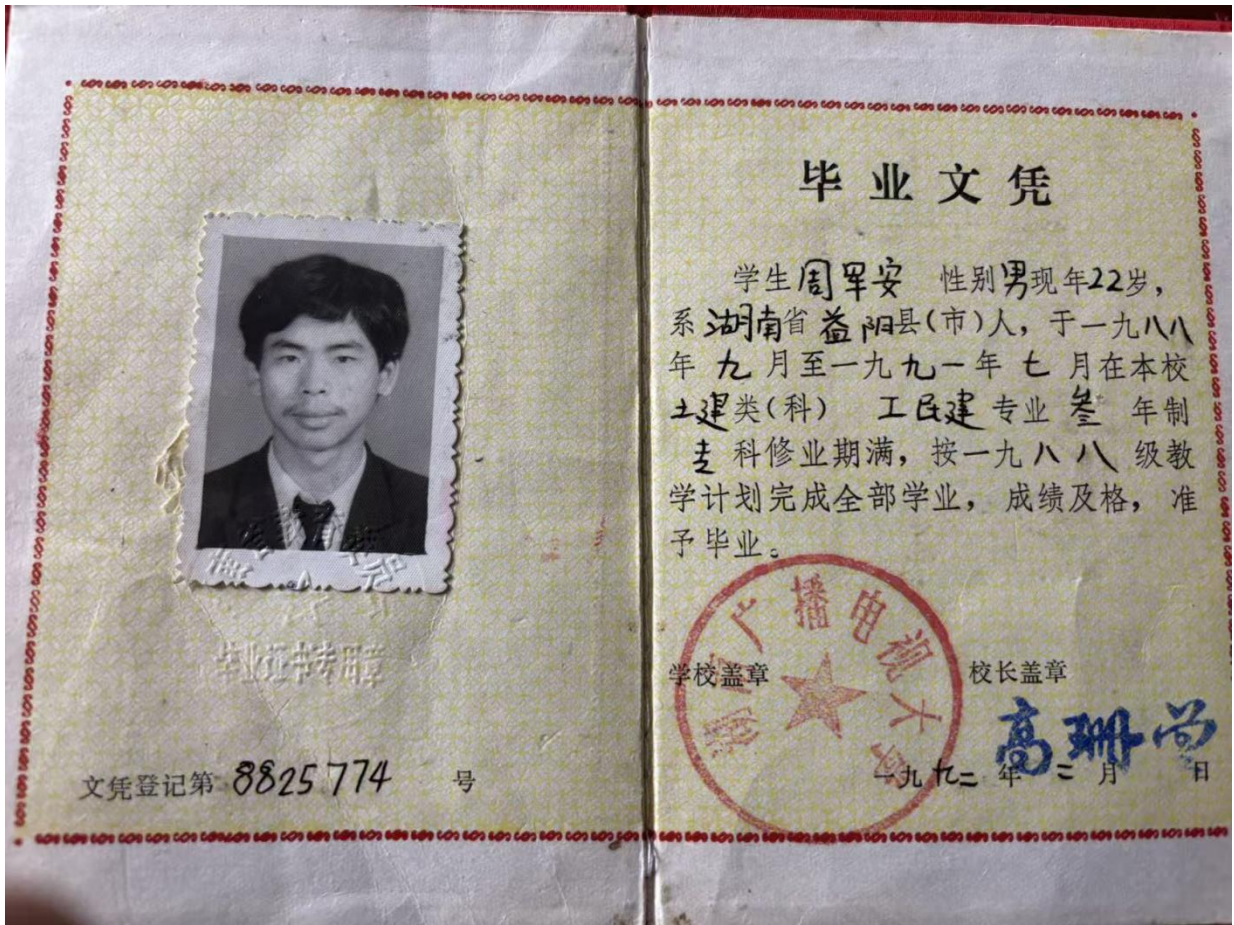 毕业证书专用章
文凭登记第 8825774 号
毕业文凭
学生周军安 性别男现年22岁，
系湖南省益阳县(市)人，于一九八八
年九月至一九九一年七月在本校
土建类(科) 工民建专业叁年制
专科修业期满，按一九八八级教
学计划完成全部学业，成绩及格，准
予毕业。
湖南广播电视大学
学校盖章 校长盖章
高
一九九二年二月 日